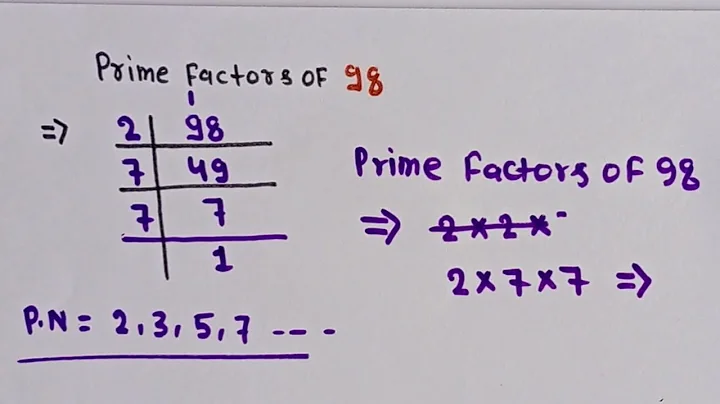 Prime Factors OF 98
=> 2 | 98
7 | 49
7 | 7
1
P.N = 2, 3, 5, 7 ---- 
Prime Factors OF 98
=> 2 × 2 ×
2 × 7 × 7 =>